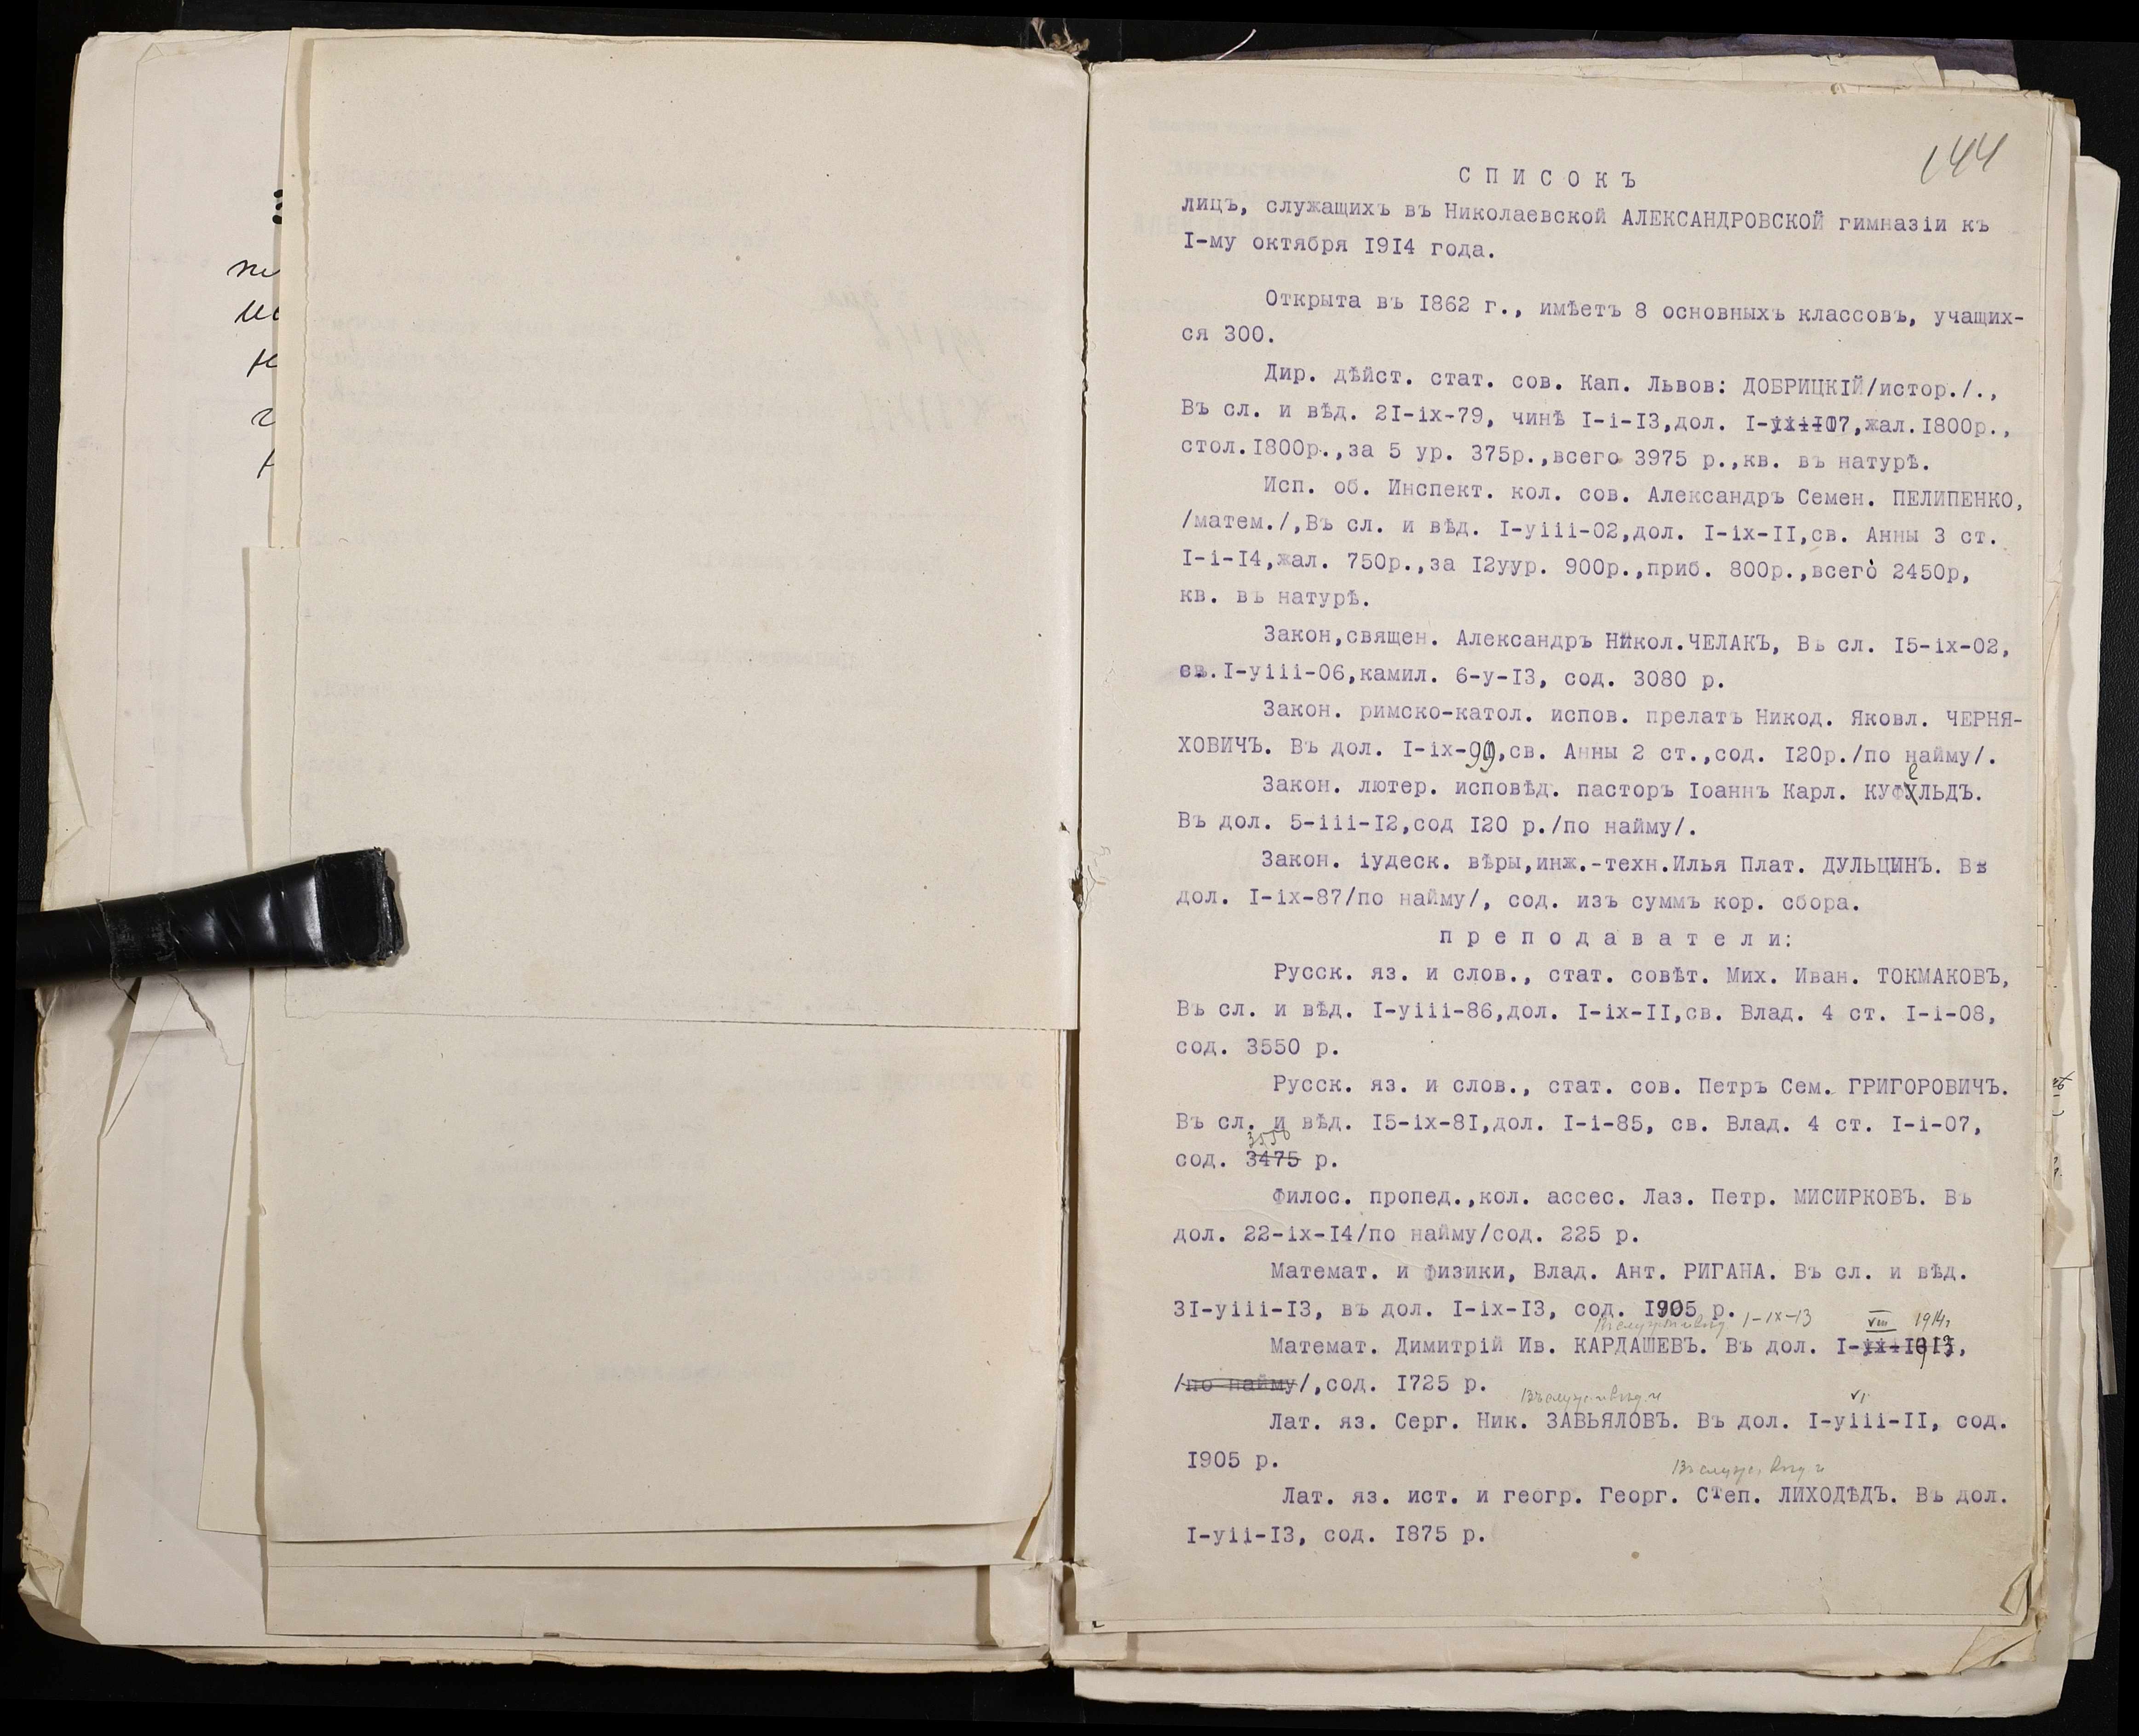 144
СПИСОКЪ
лицъ, служащихъ въ Николаевской АЛЕКСАНДРОВСКОЙ гимназіи къ
I-му октября I9I4 года.
Открыта въ I862 г., имѣетъ 8 основныхъ классовъ, учащих-
ся 300.
Дир. дѣйст. стат. сов. Кап. Львов: ДОБРИЦКІЙ/истор./.,
Въ сл. и вѣд. 2I-ix-79, чинѣ I-i-I3,дол. 07,жал.I800р.,
стол.I800р.,за 5 ур. 375р.,всего 3975 р.,кв. въ натурѣ.
Исп. об. Инспект. кол. сов. Александръ Семен. ПЕЛИПЕНКО,
/матем./,Въ сл. и вѣд. I-уiii-02,дол. I-ix-II,св. Анны 3 ст.
I-i-I4,жал. 750р.,за I2уур. 900р.,приб. 800р.,всего 2450р,
кв. въ натурѣ.
Закон,священ. Александръ Никол.ЧЕЛАКЪ, Въ сл. I5-ix-02,
св.I-уiii-06,камил. 6-у-I3, сод. 3080 р.
Закон. римско-катол. испов. прелатъ Никод. Яковл. ЧЕРНЯ-
ХОВИЧЪ. Въ дол. I-ix-99,св. Анны 2 ст.,сод. I20р./по найму/.
Закон. лютер. исповѣд. пасторъ Іоаннъ Карл. КУФЕЛЬДЪ.
Въ дол. 5-iii-I2,сод I20 р./по найму/.
Закон. іудеск. вѣры,инж.-техн.Илья Плат. ДУЛЬЦИНЪ. Въ
дол. I-ix-87/по найму/, сод. изъ суммъ кор. сбора.
преподаватели:
Русск. яз. и слов., стат. совѣт. Мих. Иван. ТОКМАКОВЪ,
Въ сл. и вѣд. I-уiii-86,дол. I-ix-II,св. Влад. 4 ст. I-i-08,
сод. 3550 р.
Русск. яз. и слов., стат. сов. Петръ Сем. ГРИГОРОВИЧЪ.
Въ сл. и вѣд. I5-ix-8I,дол. I-i-85, св. Влад. 4 ст. I-i-07,
3550
сод. 3475 р.
Филос. пропед.,кол. ассес. Лаз. Петр. МИСИРКОВЪ. Въ
дол. 22-ix-I4/по найму/сод. 225 р.
Математ. и физики, Влад. Ант. РИГАНА. Въ сл. и вѣд.
3I-уiii-I3, въ дол. I-ix-I3, сод. I905 р.
Въ служ. и вѣд. 1-IX-13 VIII 1914г
Математ. Димитрій Ив. КАРДАШЕВЪ. Въ дол. I-
/по найму/,сод. I725 р.
Въ служ. и вѣд. и VI
Лат. яз. Серг. Ник. ЗАВЬЯЛОВЪ. Въ дол. I-уiii-II, сод.
I905 р.
Въ служ. вѣд. и
Лат. яз. ист. и геогр. Георг. Степ. ЛИХОДѢДЪ. Въ дол.
I-уii-I3, сод. I875 р.